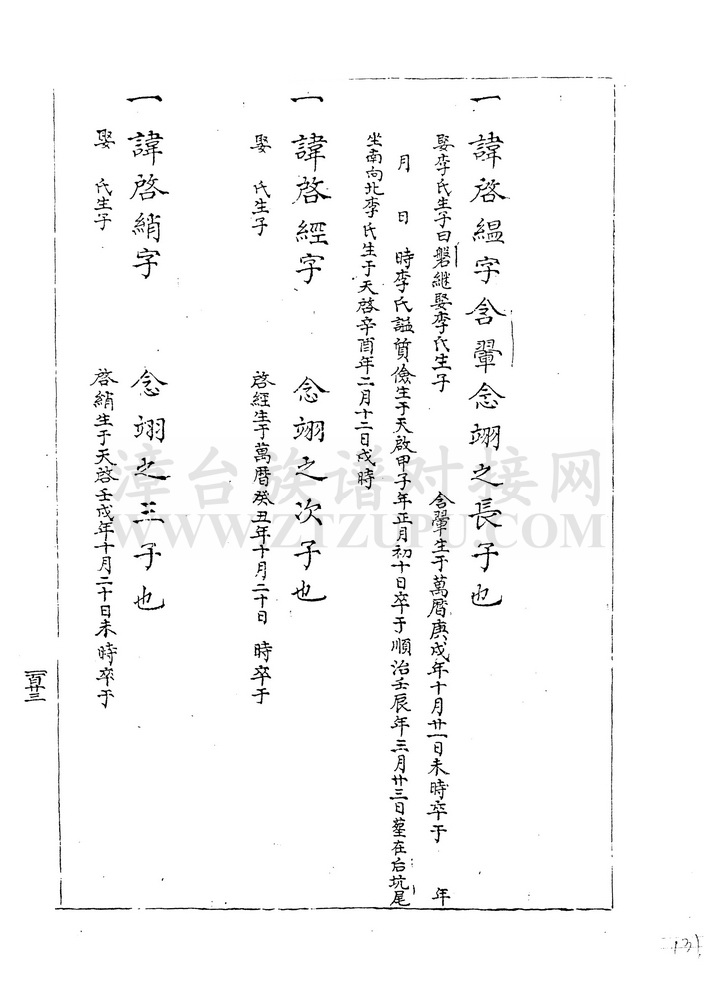 一諱啓縕字含翬念翊之長子也
娶李氏生子曰磐継娶李氏生子 含翬生于萬曆庚戌年十月廿一日未時卒于 年
月 日 時李氏諡質儉生于天啟甲子年正月初十日卒于順治壬辰年三月廿三日塟在后坑尾
坐南向北李氏生于天啓辛酉年二月十二日戌時
一諱啓經字 念翊之次子也
娶 氏生子 啓經生于萬曆癸丑年十月二十日 時卒于
一諱啓綃字 念翊之三子也
娶 氏生子 啓綃生于天啓壬戌年十月二十日未時卒于
一百廿三
漳台族谱对接网
WWW.ZTZUPU.COM